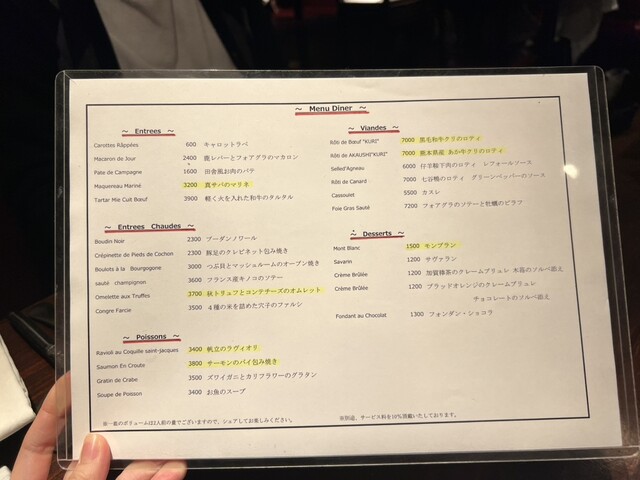 ～ Menu Diner ～
～ Entrees ～
Carottes Râppées 600 キャロットラペ
Macaron de Jour 2400 鶏レバーとフォアグラのマカロン
Pate de Campagne 1600 田舎風お肉のパテ
Maquereau Mariné 3200 真サバのマリネ
Tartar Mie Cuit Bœuf 3900 軽く火を入れた和牛のタルタル
～ Entrees Chaudes ～
Boudin Noir 2300 ブーダンノワール
Crépinette de Pieds de Cochon 2300 豚足のクレピネット包み焼き
Boulots à la Bourgogone 3000 つぶ貝とマッシュルームのオーブン焼き
sauté champignon 3600 フランス産キノコのソテー
Omelette aux Truffes 3700 秋トリュフとコンテチーズのオムレット
Congre Farcie 3500 4種の米を詰めた穴子のファルシ
～ Poissons ～
Ravioli au Coquille saint-jacques 3400 帆立のラヴィオリ
Saumon En Croute 3800 サーモンのパイ包み焼き
Gratin de Crabe 3500 ズワイガニとカリフラワーのグラタン
Soupe de Poisson 3400 お魚のスープ
※一皿のボリュームは2人前の量でございますので、シェアしてお楽しみください。
～ Viandes ～
Rôti de Bœuf "KURI" 7000 黒毛和牛クリのロティ
Rôti de AKAUSHI"KURI" 7000 熊本県産 あか牛クリのロティ
Selled'Agneau 6000 仔羊鞍下肉のロティ レフォールソース
Rôti de Canard 7000 七谷鴨のロティ グリーンペッパーのソース
Cassoulet 5500 カスレ
Foie Gras Sauté 7200 フォアグラのソテーと牡蠣のピラフ
～ Desserts ～
Mont Blanc 1500 モンブラン
Savarin 1200 サヴァラン
Crème Brûlée 1200 加賀棒茶のクレームブリュレ 木苺のソルベ添え
Crème Brûlée 1200 ブラッドオレンジのクレームブリュレ
チョコレートのソルベ添え
Fondant au Chocolat 1300 フォンダン・ショコラ
※別途、サービス料を10%頂戴いたしております。